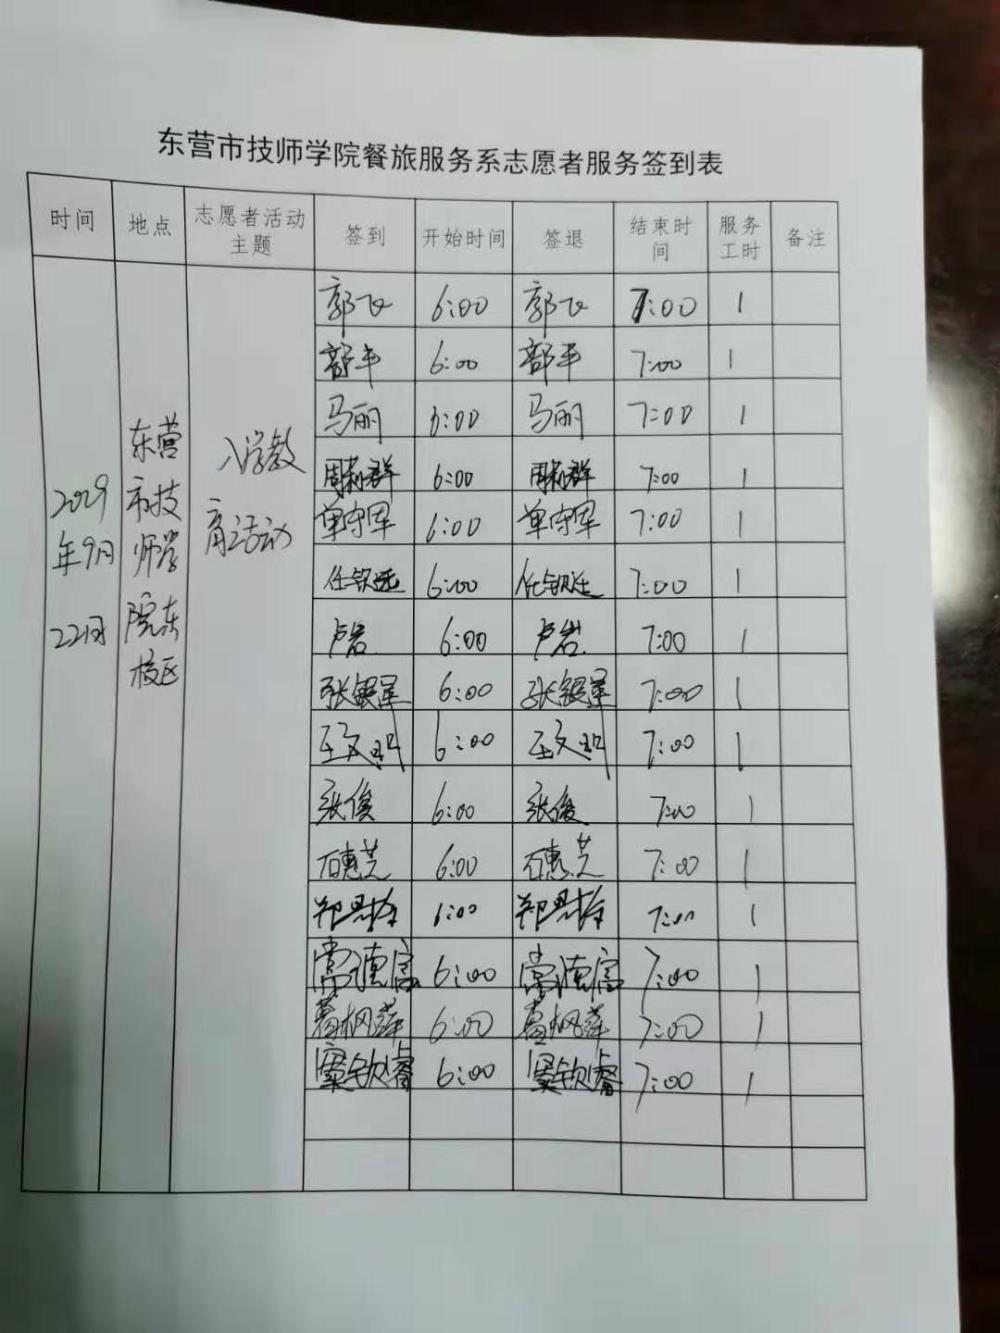 东营市技师学院餐旅服务系志愿者服务签到表
时间 地点 志愿者活动主题 签到 开始时间 签退 结束时间 服务工时 备注
2029年9月22日 东营市技师学院东校区 入学教育活动
郭飞 6:00 郭飞 7:00 1
6:00 7:00 1
马丽 6:00 马丽 7:00 1
周莉群 6:00 周莉群 7:00 1
单守军 6:00 单守军 7:00 1
6:00 7:00 1
卢岩 6:00 卢岩 7:00 1
张银星 6:00 张银星 7:00 1
6:00 7:00 1
张俊 6:00 张俊 7:00 1
石惠芝 6:00 石惠芝 7:00 1
6:00 7:00 1
常德富 6:00 常德富 7:00 1
葛枫萍 6:00 葛枫萍 7:00 1
窦钦睿 6:00 窦钦睿 7:00 1